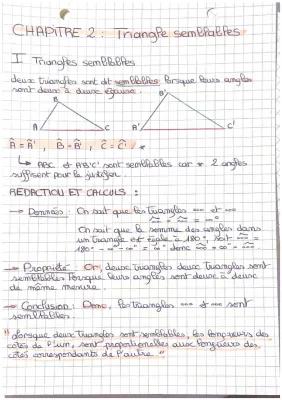 CHAPITRE 2 : Triangle semblables
I Triangles semblables
deux triangles sont dit semblables lorsque leurs angles
sont deux à deux égaux.
B B'
A C A' C'
Â = Â', B̂ = B̂', Ĉ = Ĉ' *
↳ ABC et A'B'C' sont semblables car * 2 angles
suffisent pour le justifier.
REDACTION ET CALCULS :
→ Données : On sait que les triangles --- et ---
On sait que la somme des angles dans
un triangle est égale à 180°, soit
180° - ...° - ...° = ...° donc
→ Propriété : Or, deux triangles deux triangles sont
semblables lorsque leurs angles sont deux à deux
de même mesure.
→ Conclusion : Donc, les triangles --- et --- sont
semblables.
" Lorsque deux triangles sont semblables, les longueurs des
côtés de l'un, sont proportionelles aux longueurs des
côtés correspondants de l'autre. "